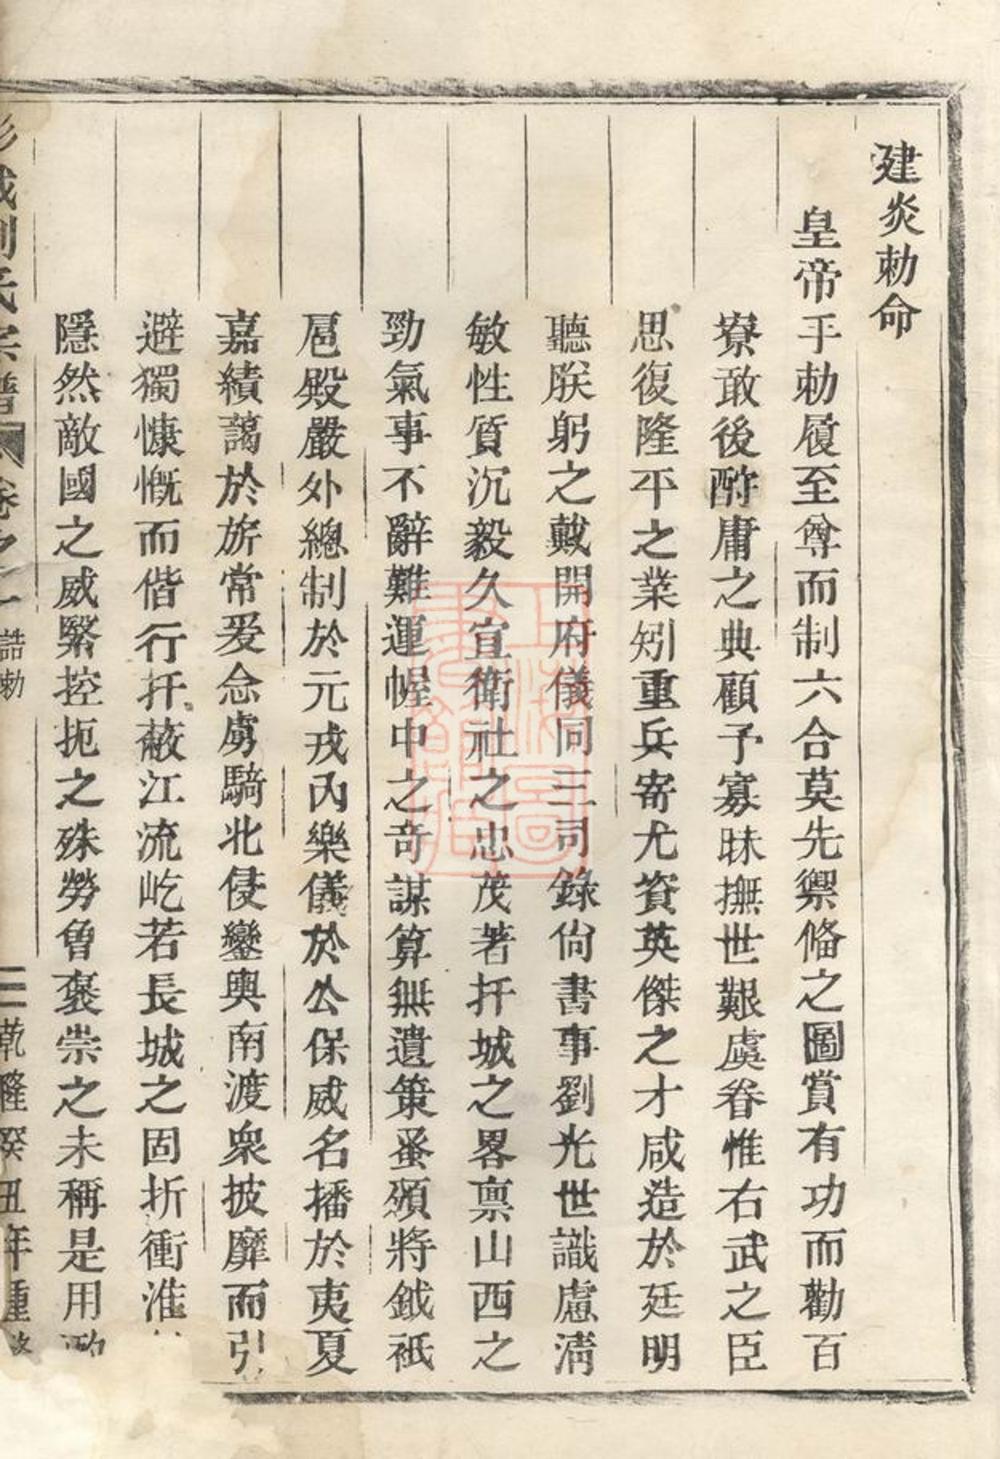 建炎勅命
皇帝手勅履至尊而制六合莫先禦脩之圖賞有功而勸百
寮敢後酧庸之典顧予寡昧撫世艱虞眷惟右武之臣
思復隆平之業矧重兵寄尤資英傑之才咸造於廷明
聽朕躬之戴開府儀同三司錄尙書事劉光世識慮淸
敏性質沉毅久宣衛社之忠茂著扞城之畧禀山西之
勁氣事不辭難運幄中之奇謀算無遺策蚤頒將鉞祗
扈殿嚴外總制於元戎內樂儀於公保威名播於夷夏
嘉績藹於旂常爰念虜騎北侵鑾輿南渡衆披靡而引
避獨慷慨而偕行扞蔽江流屹若長城之固折衝淮
隱然敵國之威緊控扼之殊勞魯褒崇之未稱是用
彭城劉氏宗譜 卷之一 誥勅 二 乾隆癸丑年重修
上海圖書館藏